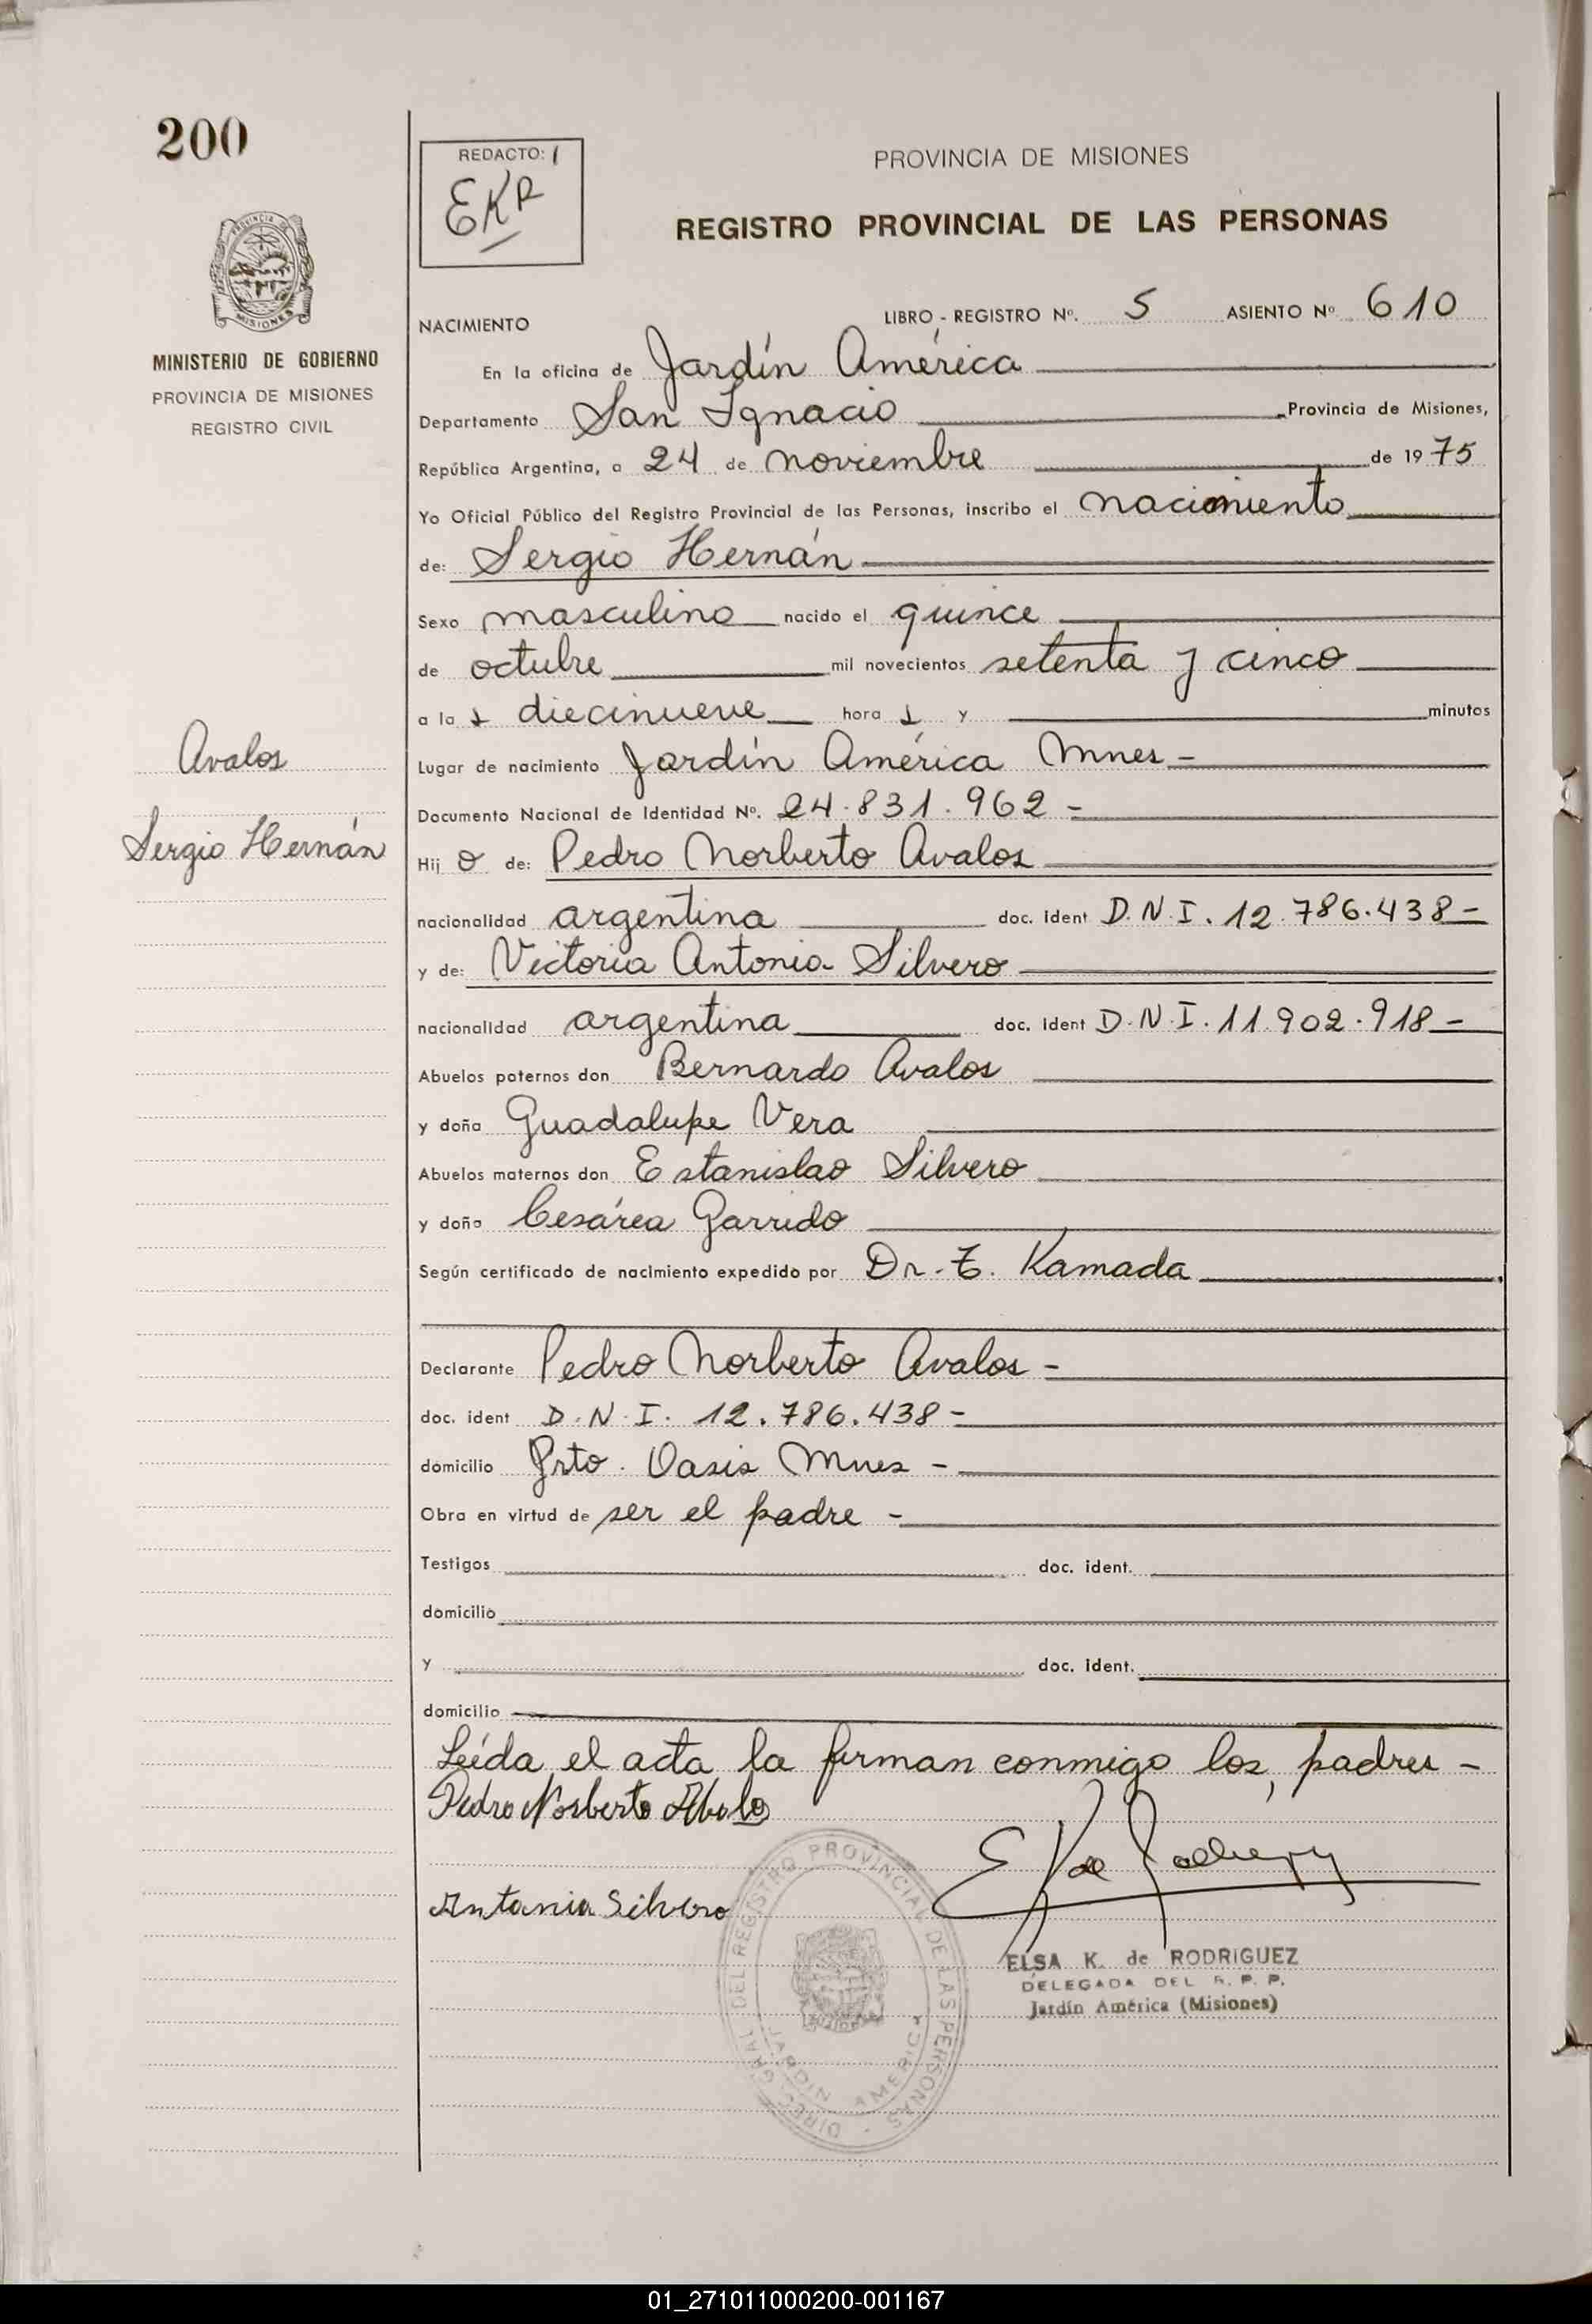 200
PROVINCIA DE
MISIONES
MINISTERIO DE GOBIERNO
PROVINCIA DE MISIONES
REGISTRO CIVIL
Avalos
Sergio Hernán
REDACTO:
EKR
PROVINCIA DE MISIONES
REGISTRO PROVINCIAL DE LAS PERSONAS
NACIMIENTO LIBRO - REGISTRO Nº. 5 ASIENTO Nº 610
En la oficina de Jardín América
Departamento San Ignacio Provincia de Misiones,
República Argentina, a 24 de noviembre de 1975
Yo Oficial Público del Registro Provincial de las Personas, inscribo el nacimiento
de: Sergio Hernán
Sexo masculino nacido el quince
de octubre mil novecientos setenta y cinco
a las diecinueve horas y minutos
Lugar de nacimiento Jardín América Mnes -
Documento Nacional de Identidad Nº. 24.831.962 -
Hijo de: Pedro Norberto Avalos
nacionalidad argentina doc. ident D.N.I. 12.786.438 -
y de: Victoria Antonia Silvero
nacionalidad argentina doc. ident D.N.I. 11.902.918 -
Abuelos paternos don Bernardo Avalos
y doña Guadalupe Vera
Abuelos maternos don Estanislao Silvero
y doña Cesárea Garrido
Según certificado de nacimiento expedido por Dr. T. Kamada
Declarante Pedro Norberto Avalos -
doc. ident D.N.I. 12.786.438 -
domicilio Prto. Oasis Mnes -
Obra en virtud de ser el padre -
Testigos doc. ident.
domicilio
y doc. ident.
domicilio
Leída el acta la firman conmigo los padres -
Pedro Norberto Abalo
Antonia Silvero
DIREC. GRAL. DEL REGISTRO PROVINCIAL DE LAS PERSONAS
JARDIN AMERICA
ELSA K. de RODRIGUEZ
DELEGADA DEL R. P. P.
Jardín América (Misiones)
01_271011000200-001167